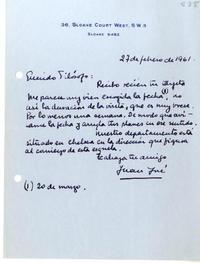 36, Sloane Court West, S.W.3
Sloane 9482
27 de febrero de 1961.
Querido Filósofo:
Recibo recién tu tarjeta
Me parece muy bien escogida la fecha(1) no
así la duración de la visita, que es muy breve.
Por lo menos una semana. De modo que
la fecha y arregla tus planes en ese sentido.
Nuestro departamento está
situado en Chelsea en la dirección que figura
al comienzo de esta esquela.
Te abraza tu amigo
Juan José
(1) 20 de marzo.